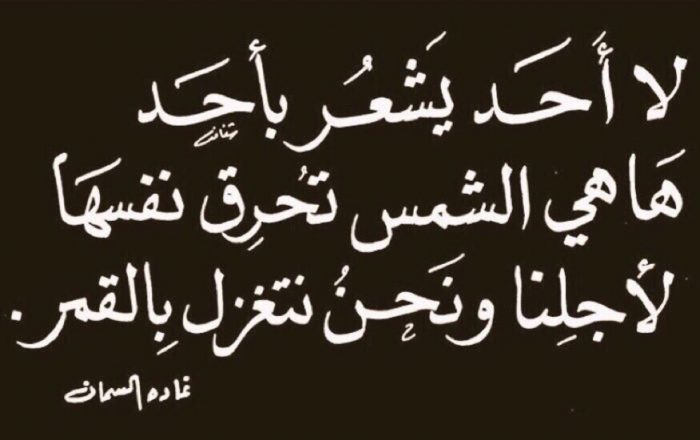 لا أَحَد يَشعُر بأحَد
هَا هي الشمس تُحرِق نفسهَا
لأجلِنا ونَحنُ نتغزل بِالقمر .
غاده السمان